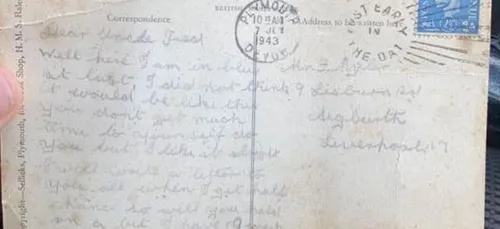 Correspondence
BRITISH
Address to be written here
PLYMOUTH
10 30 AM
7 JLY
1943
DEVON
POST EARLY
IN
THE DAY
Copyright—Sellicks, Plymouth, Shop, H.M.S. Rale
Dear Uncle Fred
Well here I am in blue
at last, I did not think
it would be like this
you don't get much
time to your self do
you but I like it alright
I will write a letter to
you all when I get half
chance so will you
on a bit I have
Mr F.
9 Lisburn Rd
Aigburth
Liverpool 17